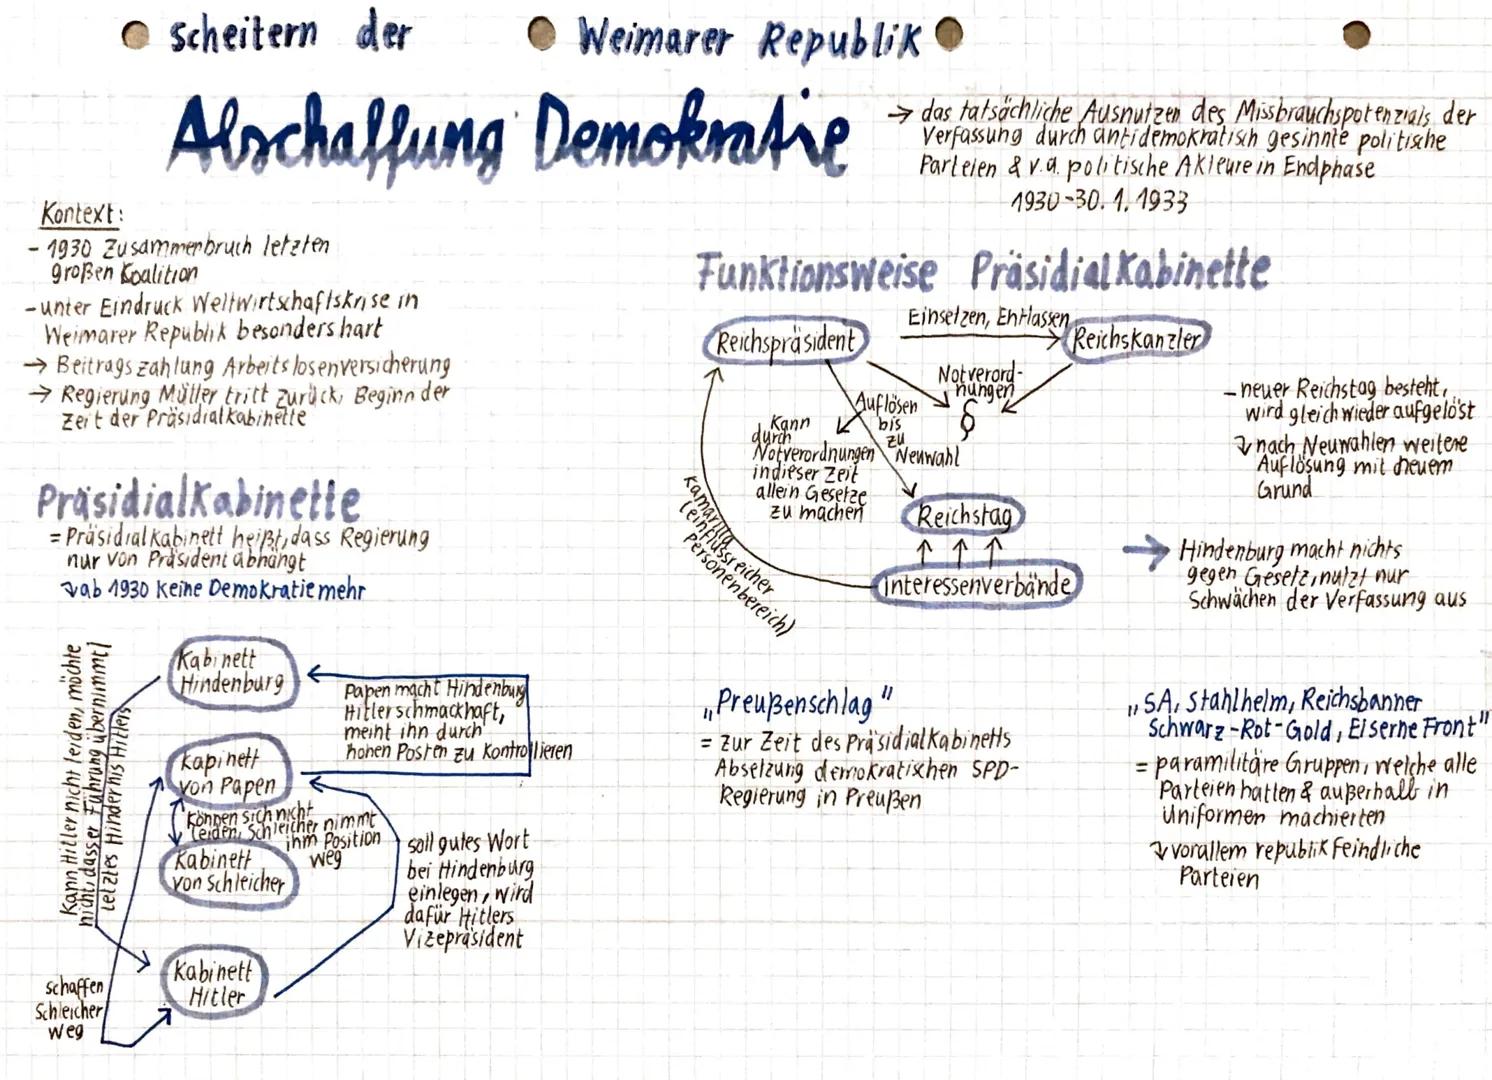 Scheitern der Weimarer Republik
Abschaffung Demokratie
→ das tatsächliche Ausnutzen des Missbrauchspotenzials der
Verfassung durch antidemokratisch gesinnte politische
Parteien & v.a. politische Akteure in Endphase
1930-30.1.1933
Kontext:
- 1930 Zusammenbruch letzten
großen Koalition
- unter Eindruck Weltwirtschaftskrise in
Weimarer Republik besonders hart
→ Beitragszahlung Arbeitslosenversicherung
→ Regierung Müller tritt zurück, Beginn der
Zeit der Präsidialkabinette
Präsidialkabinette
= Präsidialkabinett heißt, dass Regierung
nur von Präsident abhängt
↴ ab 1930 keine Demokratie mehr
Kabinett
Hindenburg
Kann Hitler nicht leiden, möchte
nicht, dasser Führung übernimmt
Letztes Hindernis Hitlers
Papen macht Hindenburg
Hitler schmackhaft,
meint ihn durch
hohen Posten zu kontrollieren
Kapinett
von Papen
können sich nicht
leiden, Schleicher nimmt
ihm Position
weg
Kabinett
von Schleicher
soll gutes Wort
bei Hindenburg
einlegen, wird
dafür Hitlers
Vizepräsident
Kabinett
Hitler
schaffen
Schleicher
weg
Funktionsweise Präsidialkabinette
Reichspräsident
Einsetzen, Entlassen
Reichskanzler
Notverord-
nungen
§
Auflösen
bis
zu
Neuwahl
Kann
durch
Notverordnungen
in dieser Zeit
allein Gesetze
zu machen
Reichstag
Interessenverbände
Kamarilla
(einflussreicher
Personenbereich)
- neuer Reichstag besteht,
wird gleich wieder aufgelöst
↴ nach Neuwahlen weitere
Auflösung mit neuem
Grund
→ Hindenburg macht nichts
gegen Gesetz, nutzt nur
Schwächen der Verfassung aus
„Preußenschlag"
= zur Zeit des Präsidialkabinetts
Absetzung demokratischen SPD-
Regierung in Preußen
„SA, Stahlhelm, Reichsbanner
Schwarz-Rot-Gold, Eiserne Front"
= paramilitäre Gruppen, welche alle
Parteien hatten & außerhalb in
Uniformen machierten
↴ vorallem republikfeindliche
Parteien